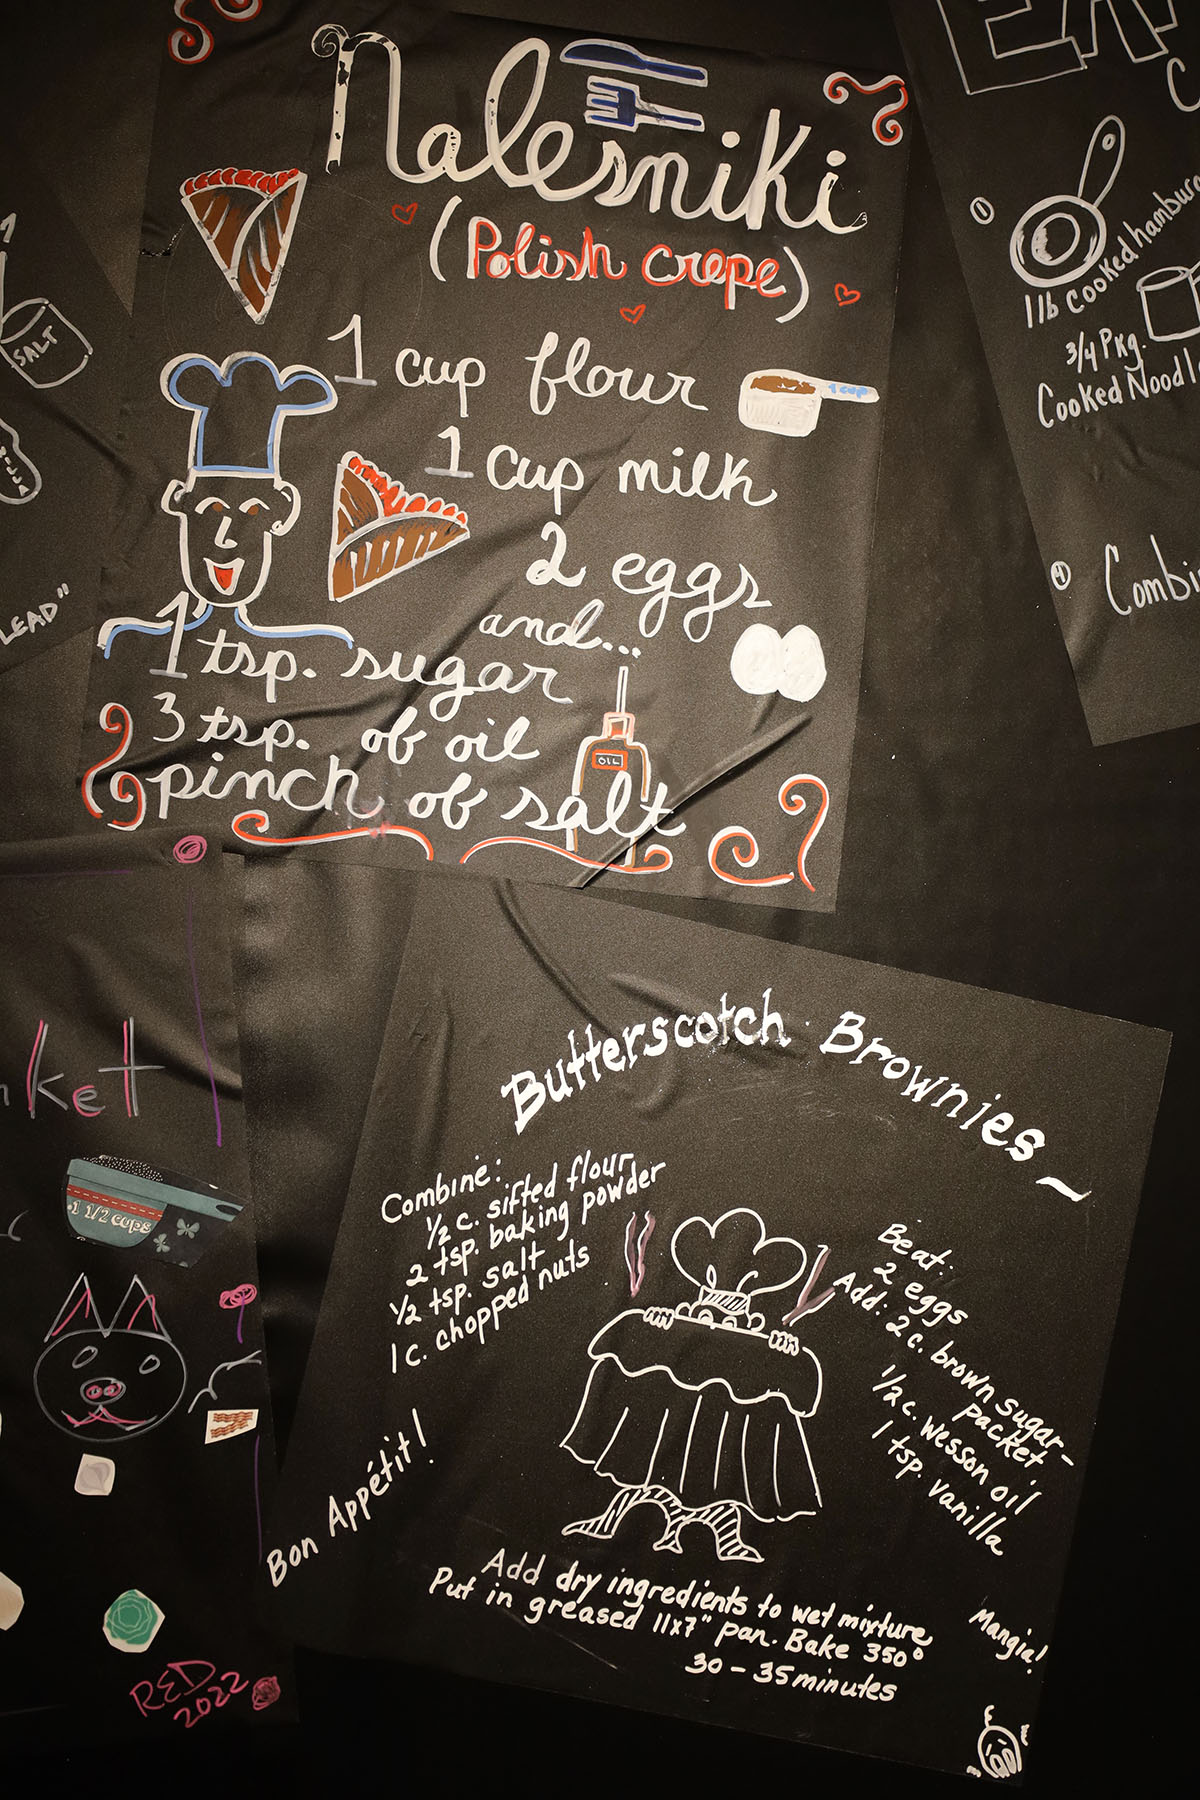 Nalesniki
(Polish crepe)
1 cup flour
1 cup
1 cup milk
2 eggs
and...
1 tsp. sugar
3 tsp. of oil
OIL
pinch of salt
SALT
LEAD"
1
1 lb Cooked hamburg
3/4 Pkg.
Cooked Noodl
4
Combi
ket
1 1/2 cups
RED
2022
Butterscotch Brownies ~
Combine:
1/2 c. sifted flour
2 tsp. baking powder
1/2 tsp. salt
1 c. chopped nuts
Beat:
2 eggs
Add: 2 c. brown sugar-
packet
1/2 c. wesson oil
1 tsp. vanilla
Bon Appétit!
Add dry ingredients to wet mixture
Put in greased 11x7" pan. Bake 350°
30 - 35 minutes
Mangia!